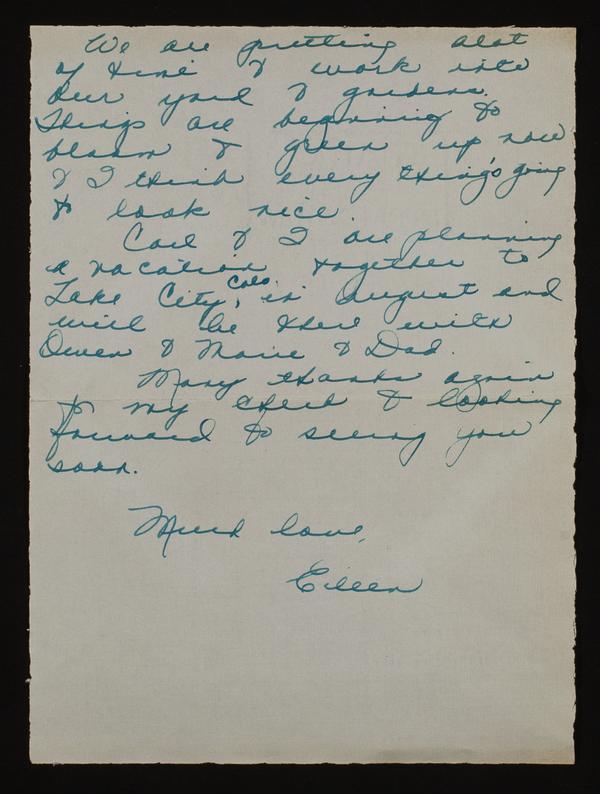 We are putting alot
of time & work into
our yard & gardens.
Things are beginning to
bloom & green up now
& I think every thing's going
to look nice.
Carl & I are planning
a vacation together to
Lake City, Colo. in August and
will be there with
Owen & Marie & Dad.
Many thanks again
for my check & looking
forward to seeing you
soon.
Much love,
Eileen